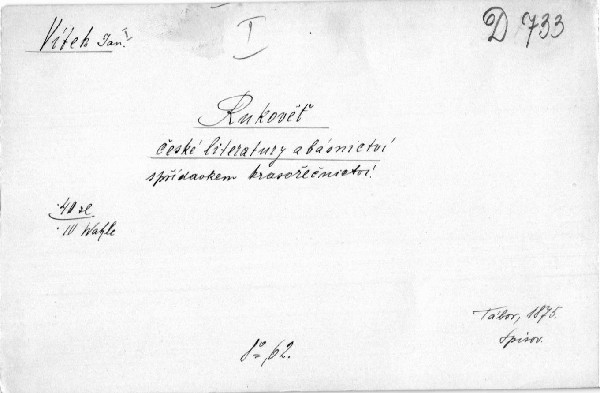 Vítek Jan. I
I
D 733
Rukověť
české literatury a básnictví
s přídavkem krasořečnictví.
·40 zl.
·10
Tábor, 1875.
Spisov.
8° 62.